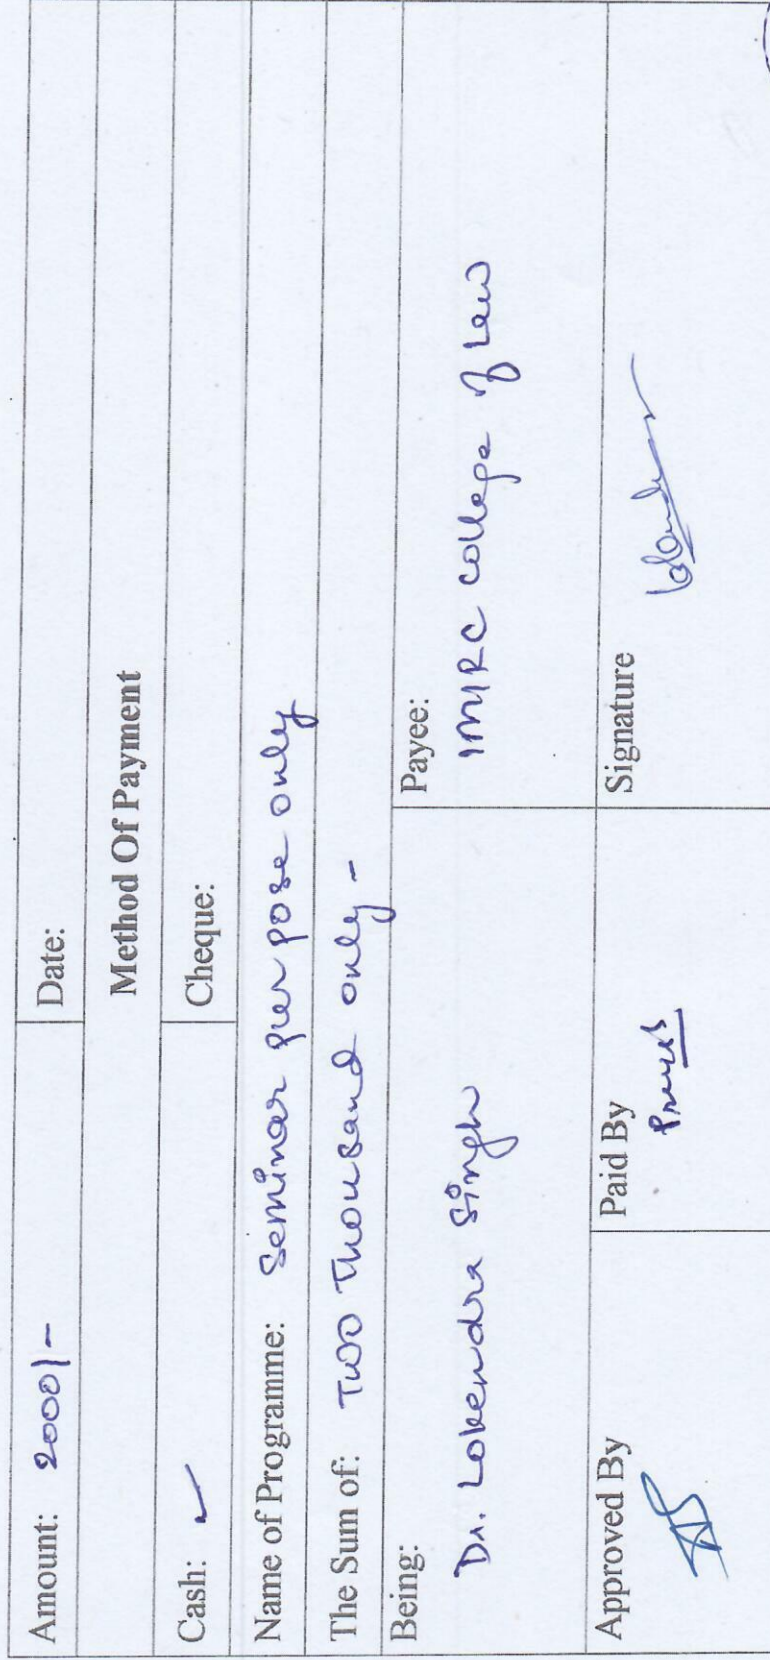 Amount: 2000/- Date:
Method Of Payment
Cash: ✓ Cheque:
Name of Programme: Seminar pur pose only
The Sum of: Two Thousand only -
Being: Payee:
Dr. Lokendra Singh IMIRC College of Law
Approved By Paid By Signature